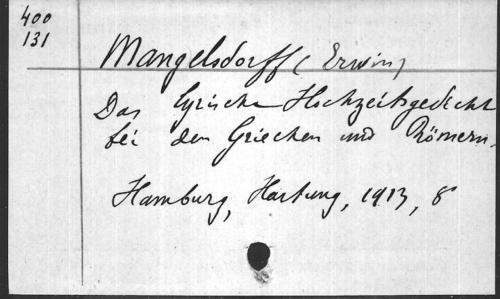 400
131
Mangelsdorff (Erwin)
Das lyrische Hochzeitsgedicht
bei den Griechen und Römern.
Hamburg, Hartung, 1913, 8